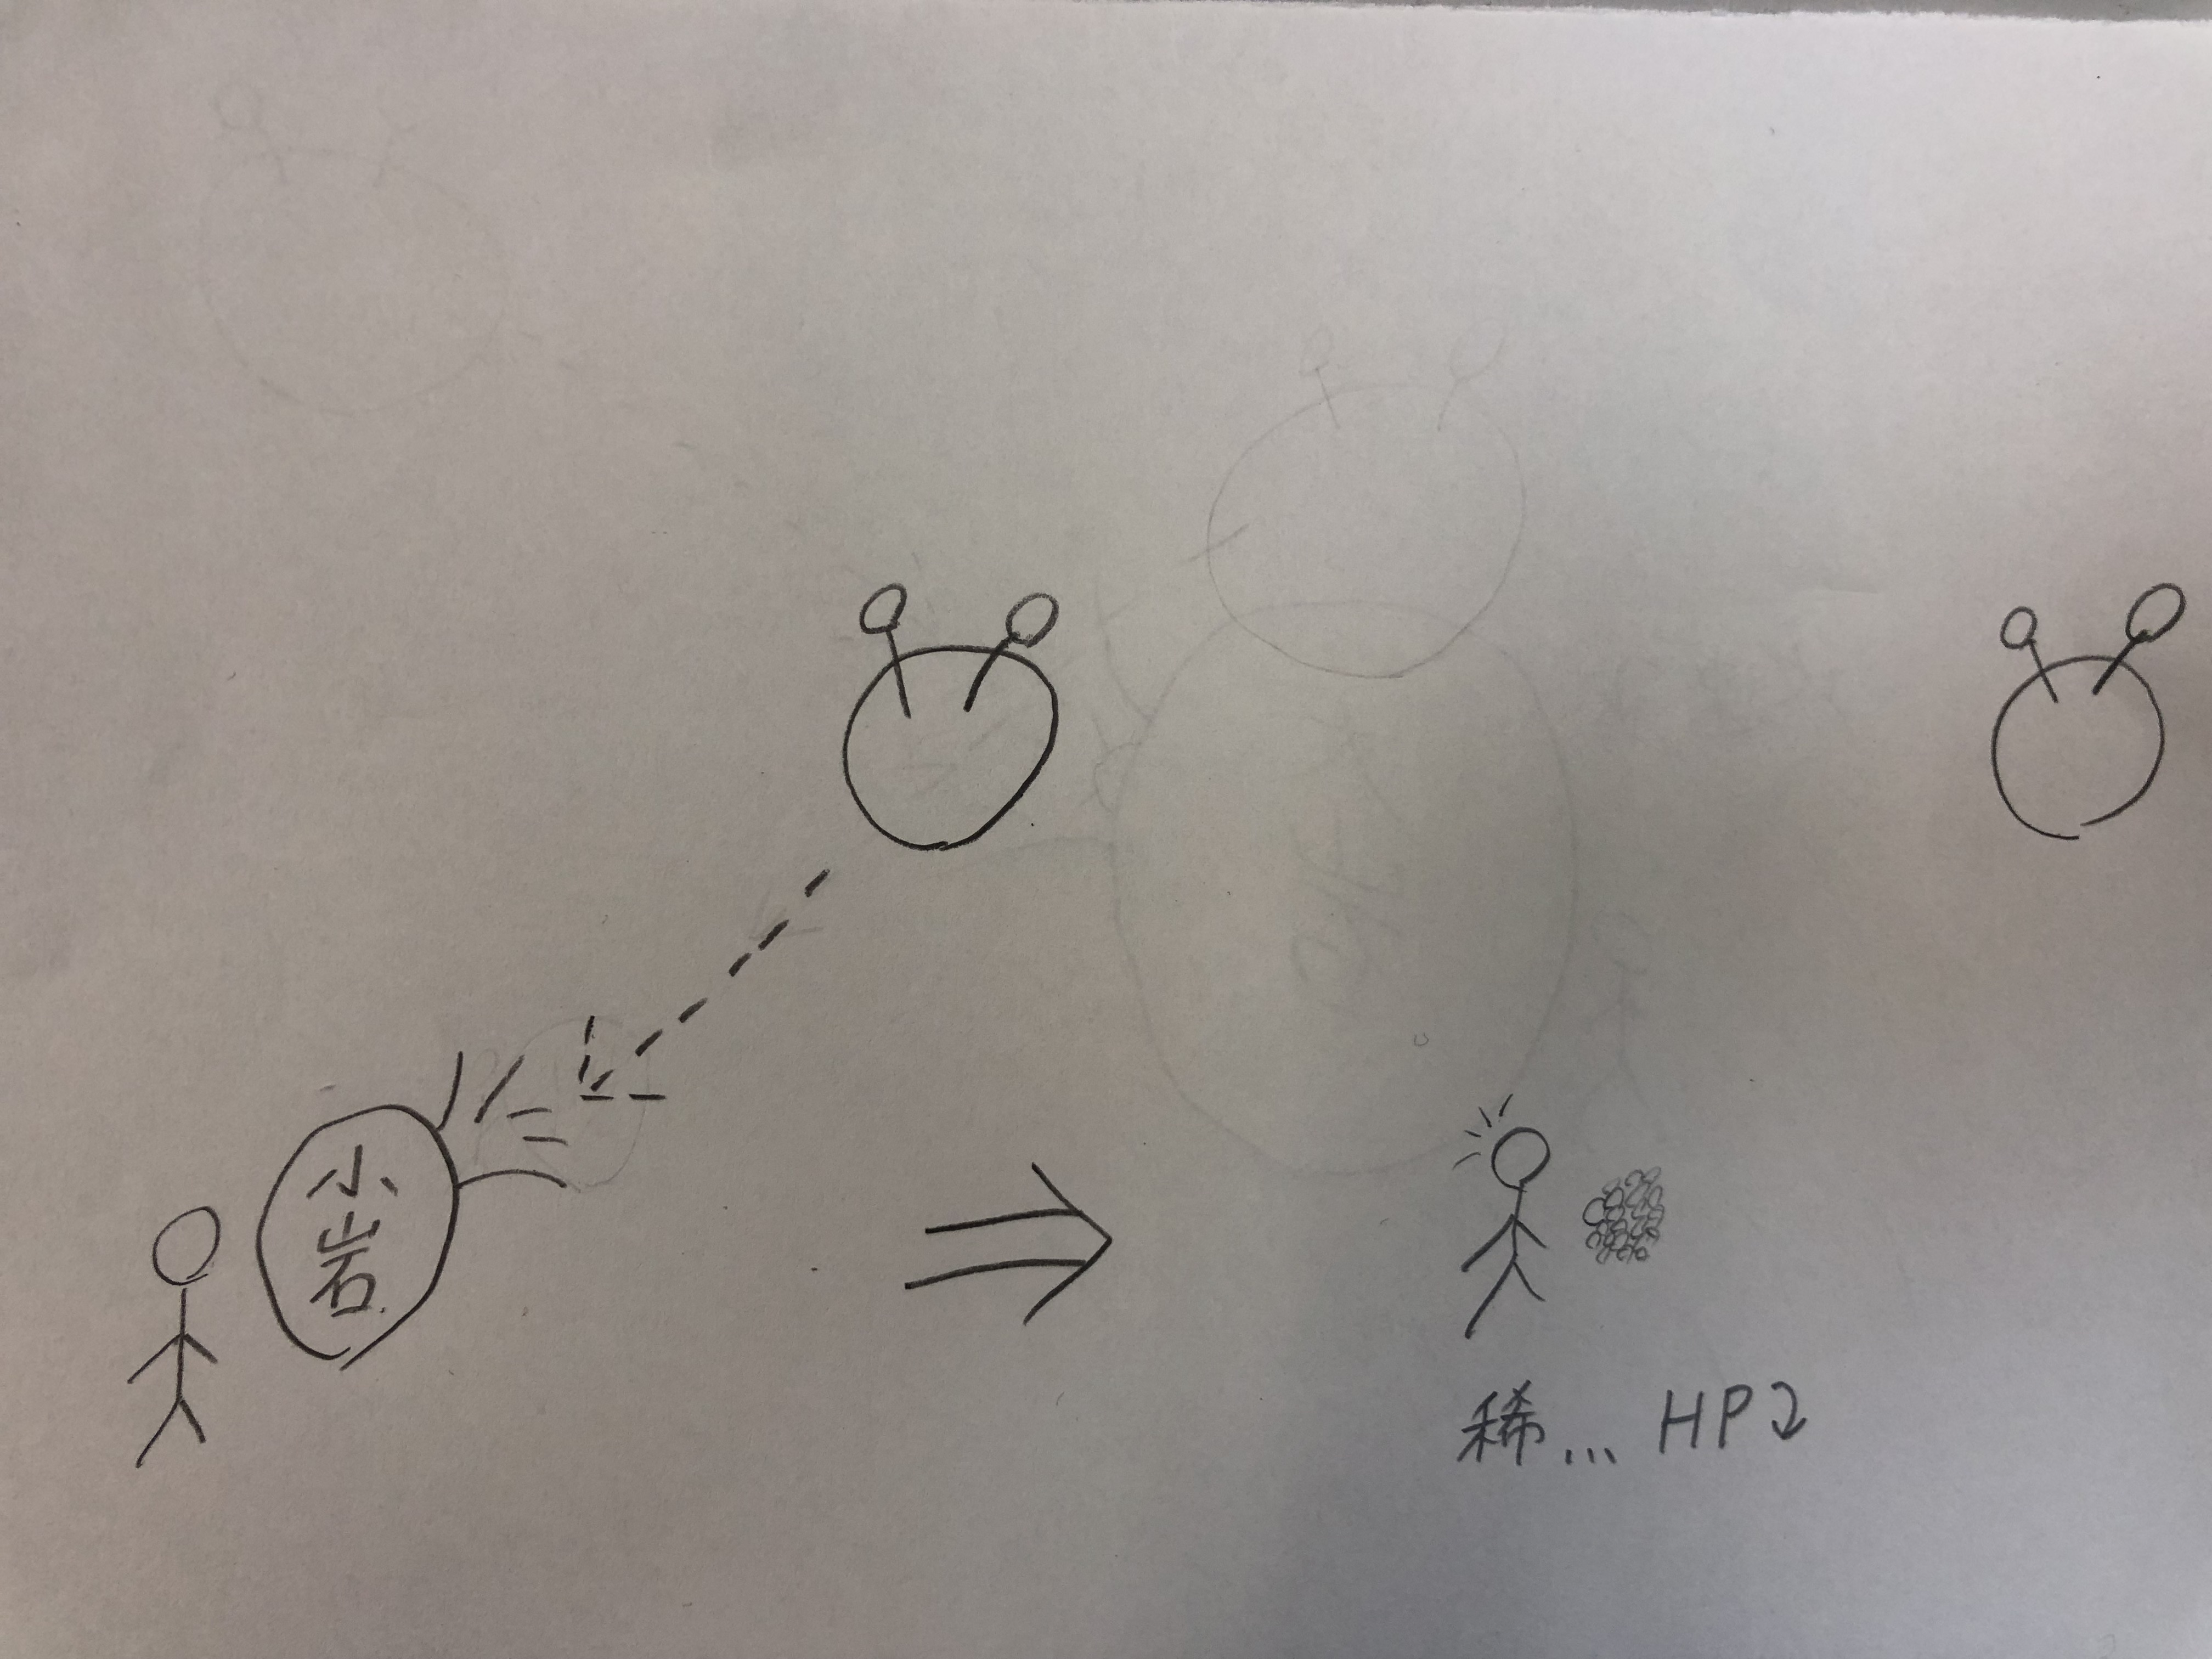 小
岩
稀... HP